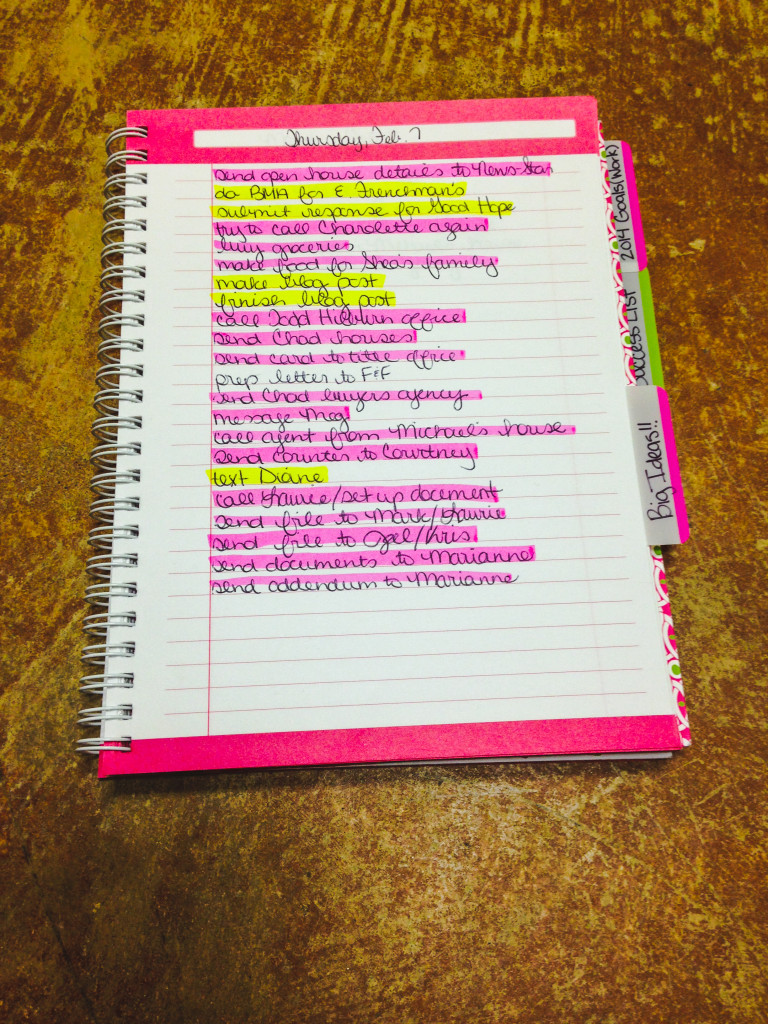 Thursday, Feb. 7
send open house details to News-Star
do BMA for E. Frenchman's
submit response for Good Hope
try to call Charolette again
buy groceries
make food for Shea's family
make blog post
finish blog post
call Todd office
send Chad houses
send card to title office
prep letter to F&F
send Chad buyers agency
message Meg
call agent from Michael's house
send counter to Courtney
text Diane
call Laurie/set up document
send file to Mark/Laurie
send file to /Chris
send documents to Marianne
send addendum to Marianne
2014 Goals (Work)
Success List
Big Ideas!!